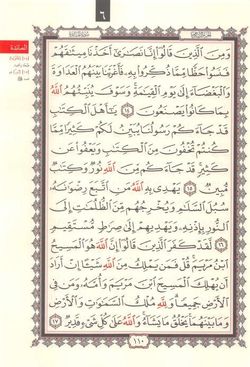 ٦
المائدة
وَمِنَ ٱلَّذِينَ قَالُوٓا۟ إِنَّا نَصَٰرَىٰٓ أَخَذْنَا مِيثَٰقَهُمْ
فَنَسُوا۟ حَظًّا مِّمَّا ذُكِّرُوا۟ بِهِۦ فَأَغْرَيْنَا بَيْنَهُمُ ٱلْعَدَاوَةَ
وَٱلْبَغْضَآءَ إِلَىٰ يَوْمِ ٱلْقِيَٰمَةِ وَسَوْفَ يُنَبِّئُهُمُ ٱللَّهُ
بِمَا كَانُوا۟ يَصْنَعُونَ ١٤ يَٰٓأَهْلَ ٱلْكِتَٰبِ
قَدْ جَآءَكُمْ رَسُولُنَا يُبَيِّنُ لَكُمْ كَثِيرًا مِّمَّا
كُنتُمْ تُخْفُونَ مِنَ ٱلْكِتَٰبِ وَيَعْفُوا۟ عَن
كَثِيرٍ قَدْ جَآءَكُم مِّنَ ٱللَّهِ نُورٌ وَكِتَٰبٌ
مُّبِينٌ ١٥ يَهْدِى بِهِ ٱللَّهُ مَنِ ٱتَّبَعَ رِضْوَٰنَهُۥ
سُبُلَ ٱلسَّلَٰمِ وَيُخْرِجُهُم مِّنَ ٱلظُّلُمَٰتِ إِلَى
ٱلنُّورِ بِإِذْنِهِۦ وَيَهْدِيهِمْ إِلَىٰ صِرَٰطٍ مُّسْتَقِيمٍ
١٦ لَّقَدْ كَفَرَ ٱلَّذِينَ قَالُوٓا۟ إِنَّ ٱللَّهَ هُوَ ٱلْمَسِيحُ
ٱبْنُ مَرْيَمَ قُلْ فَمَن يَمْلِكُ مِنَ ٱللَّهِ شَيْـًٔا إِنْ أَرَادَ
أَن يُهْلِكَ ٱلْمَسِيحَ ٱبْنَ مَرْيَمَ وَأُمَّهُۥ وَمَن فِى
ٱلْأَرْضِ جَمِيعًا وَلِلَّهِ مُلْكُ ٱلسَّمَٰوَٰتِ وَٱلْأَرْضِ
وَمَا بَيْنَهُمَا يَخْلُقُ مَا يَشَآءُ وَٱللَّهُ عَلَىٰ كُلِّ شَىْءٍ قَدِيرٌ ١٧
١١٠